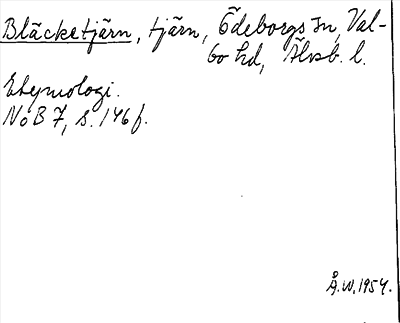 Bläcketjärn, tjärn, Ödeborgs sn, Val-
bo hd, Älvsb. l.
Etymologi.
NoB 7, s. 146 f.
Å.W. 1954.